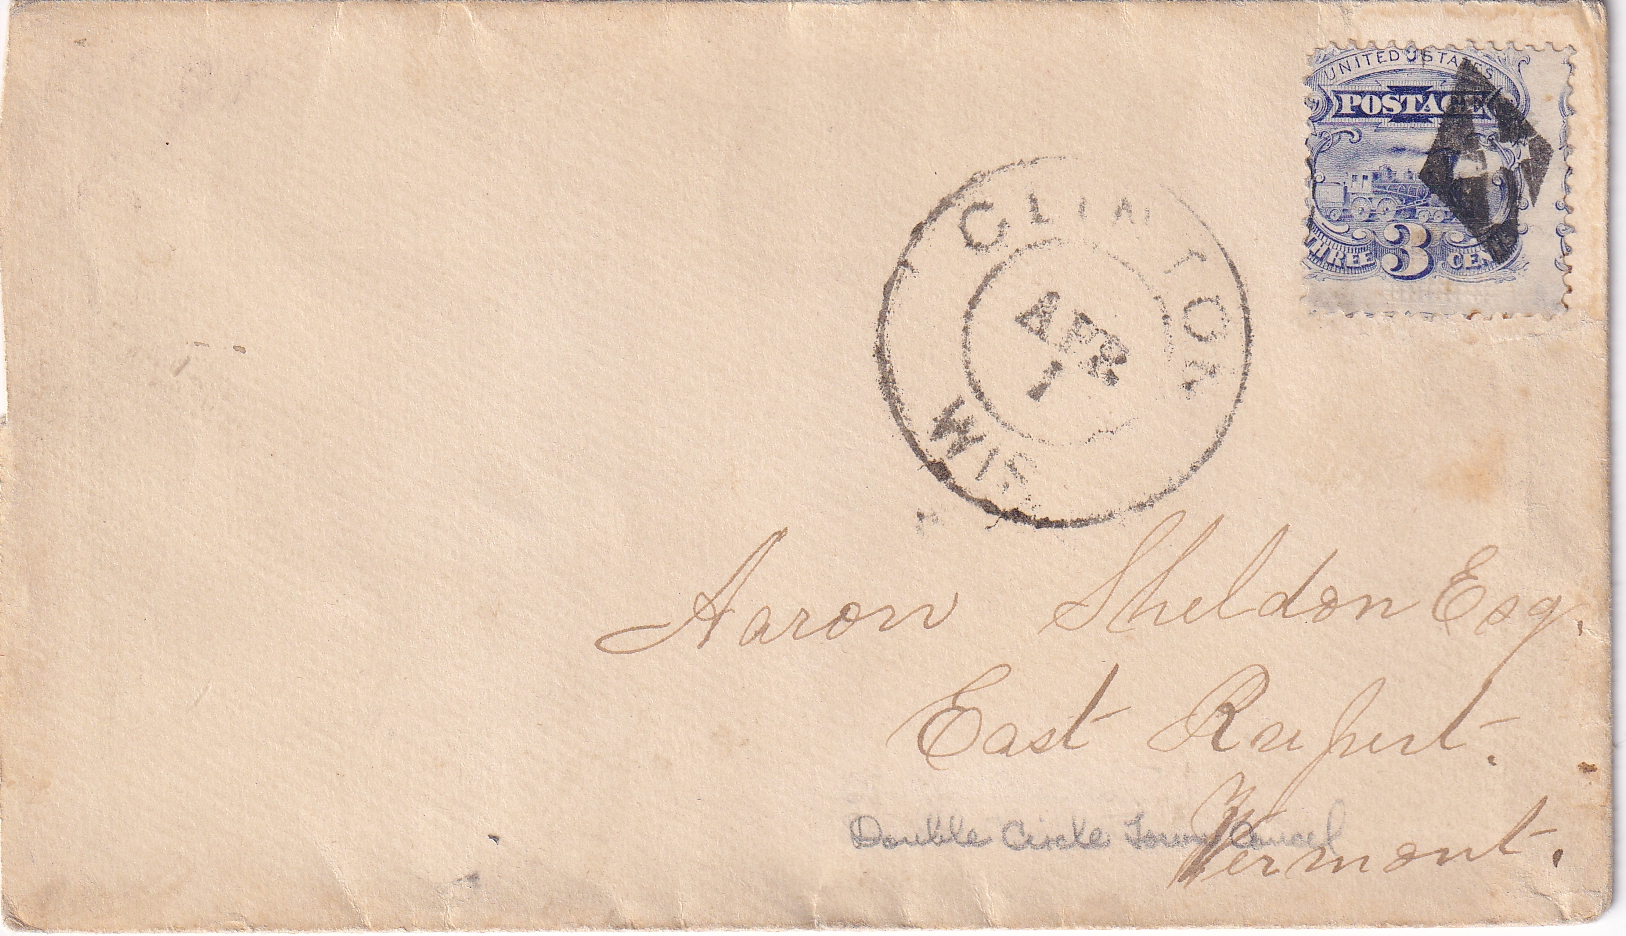 UNITED STATES
POSTAGE
3
THREE CENTS
CLINTON
APR
1
WIS
Aaron Sheldon Esq.
East Rupert.
Vermont.
Double Circle Town Cancel